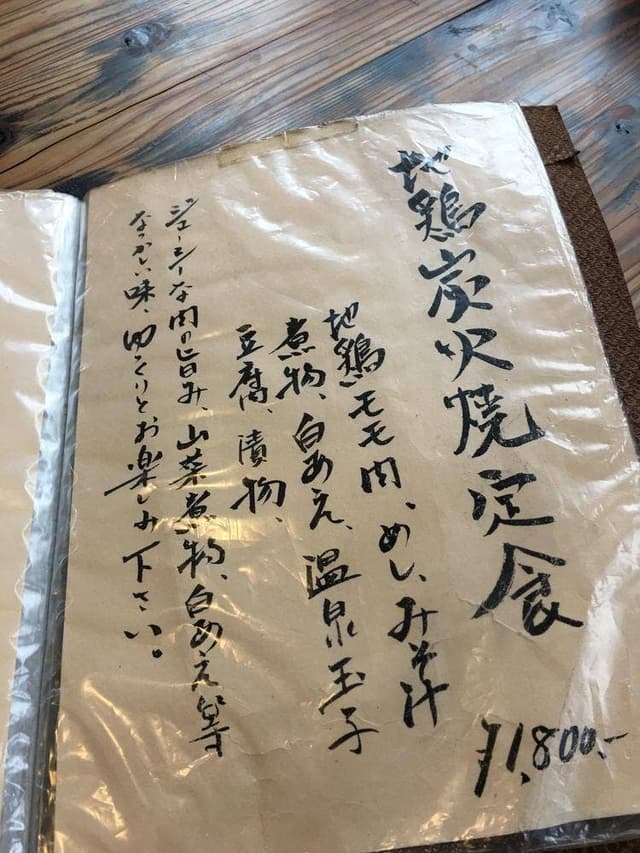 地鶏炭火焼定食
地鶏モモ肉、めし、みそ汁
煮物、白あえ、温泉玉子
豆腐、漬物、
ジューシーな肉の旨み、山菜煮物、白あえ等
なつかしい味、ゆっくりとお楽しみ下さい。
¥1,800.-